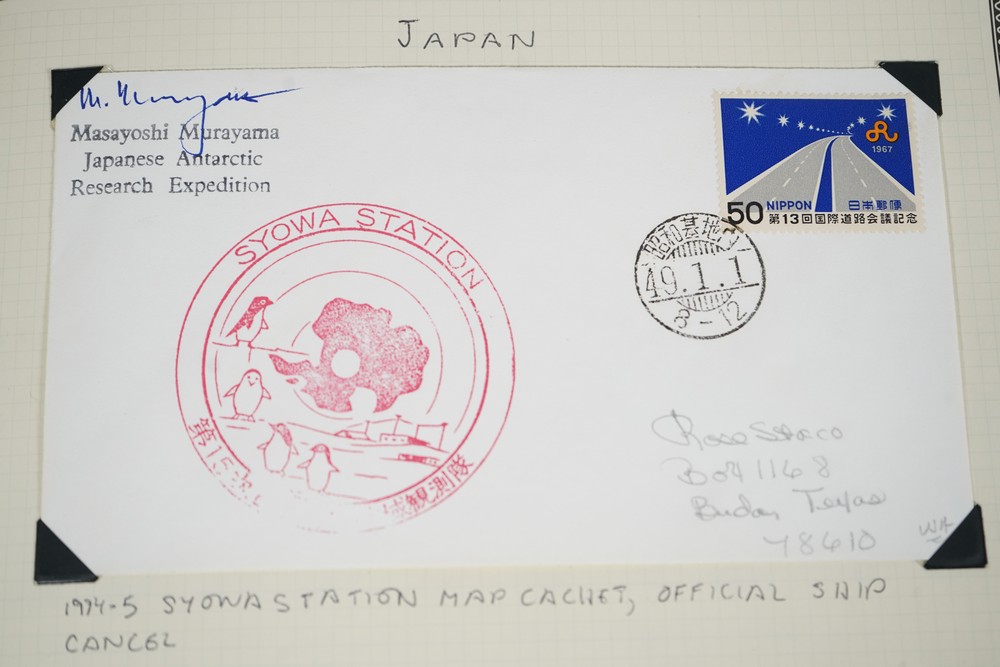 JAPAN
M. Murayama
Masayoshi Murayama
Japanese Antarctic
Research Expedition
1967
50 NIPPON 日本郵便
第13回国際道路会議記念
昭和基地内
49.1.1
8-12
SYOWA STATION
第15次
観測隊
Box 1168
Buda, Texas
78610
WA
1974-5 SYOWA STATION MAP CACHET, OFFICIAL SHIP
CANCEL